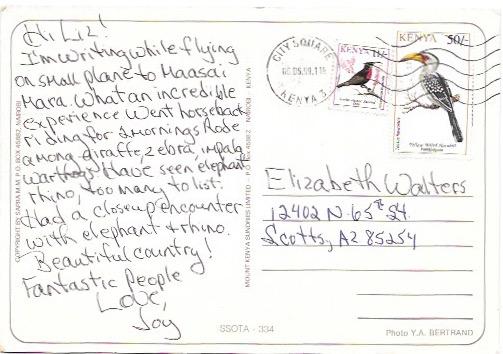 Hi Liz!
I'm writing while flying
on small plane to Maasai
Mara. What an incredible
experience went horseback
riding for 2 mornings Rode
among giraffe, zebra, impala,
warthogs Have seen elephant
rhino, too many to list.
Had a close up encounter
with elephant & rhino.
Beautiful country!
Fantastic People
Love,
Joy
COPYRIGHT BY SAPRA M.M. P.O. BOX 45882, NAIROBI
MOUNT KENYA SUNDRIES LIMITED - P.O. BOX 45882 NAIROBI - KENYA
CITY SQUARE
KENYA
KENYA 11/-
KENYA 50/-
Yellow Billed Hornbill
Elizabeth Walters
12402 N. 65th St.
Scotts, AZ 85254
SSOTA - 334
Photo Y.A. BERTRAND